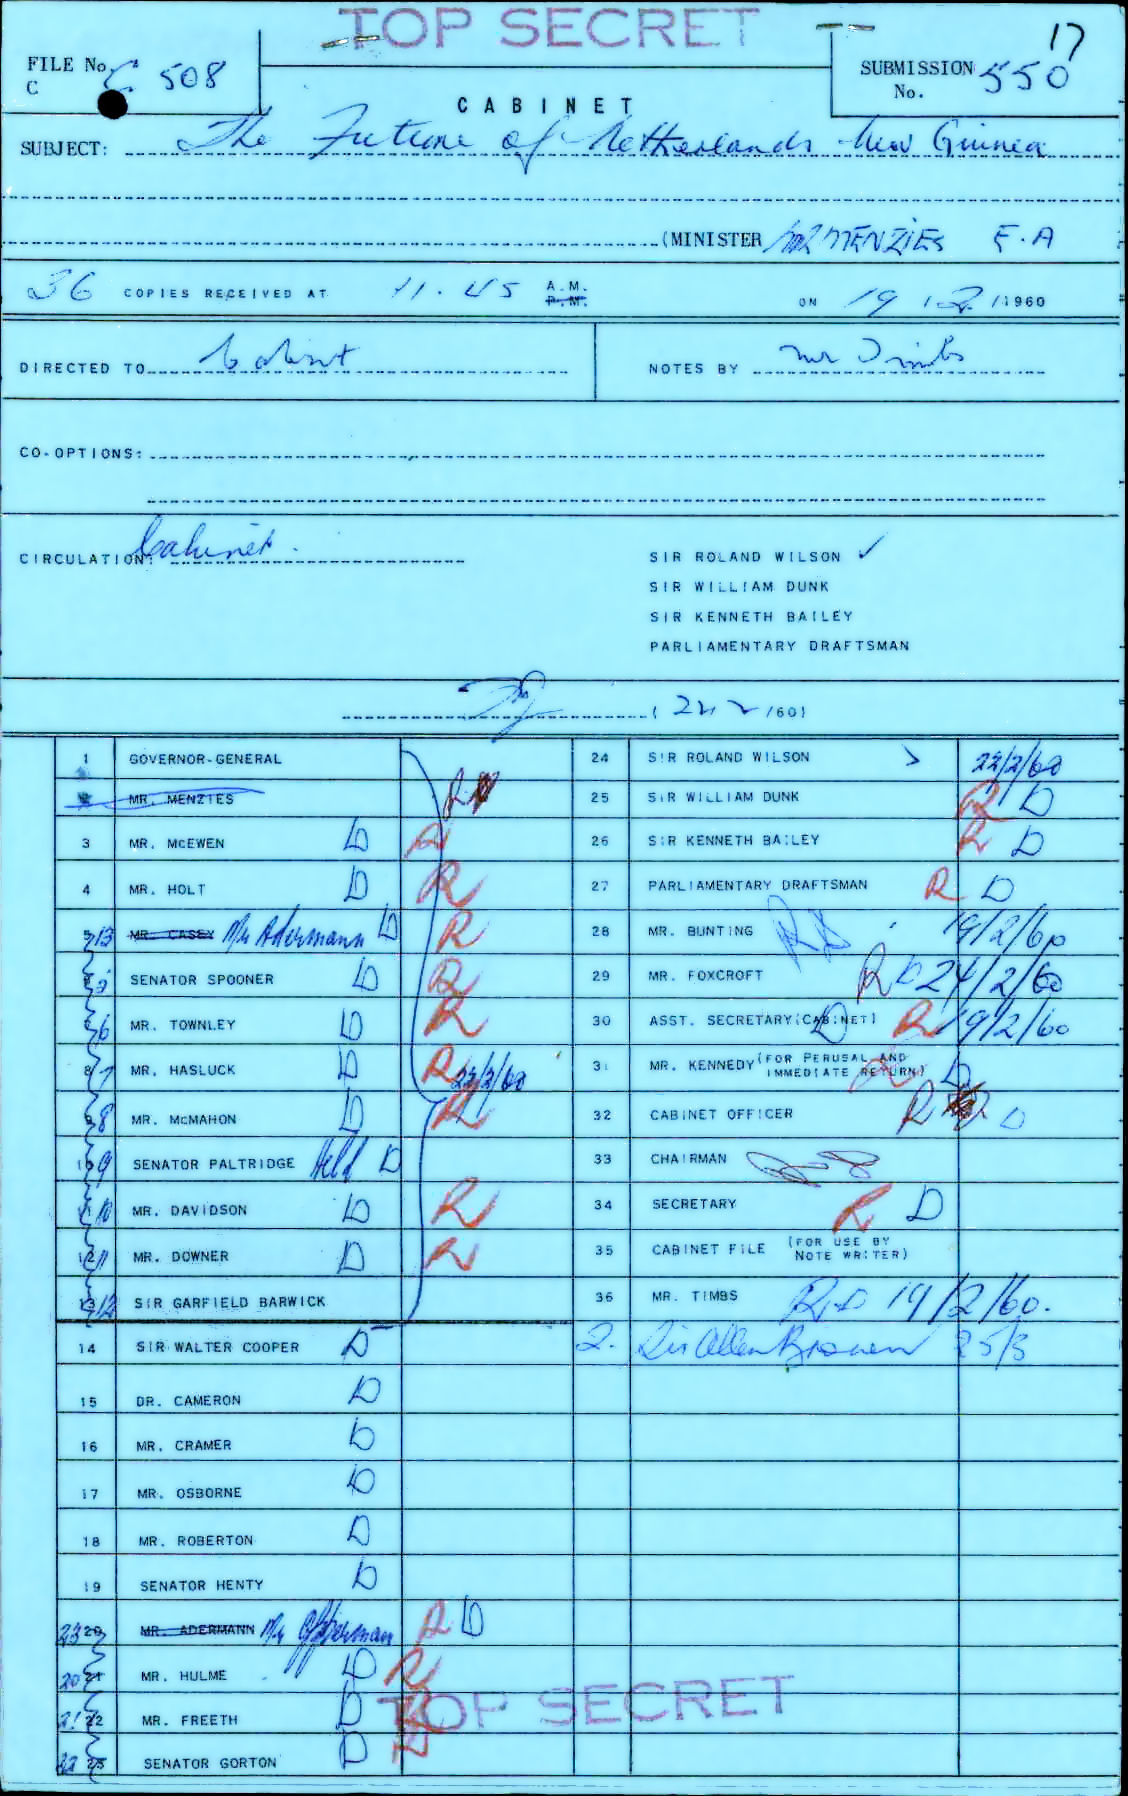 TOP SECRET
17
FILE No. C 508
C
SUBMISSION No. 550
CABINET
SUBJECT: The Future of Netherlands New Guinea
(MINISTER MR MENZIES E.A
36 COPIES RECEIVED AT 11.45 A.M. P.M. ON 19 / 2 /1960
DIRECTED TO Cabinet
NOTES BY Mr Timbs
CO-OPTIONS:
CIRCULATION: Cabinet.
SIR ROLAND WILSON ✓
SIR WILLIAM DUNK
SIR KENNETH BAILEY
PARLIAMENTARY DRAFTSMAN
( 22 2 /60)
1 GOVERNOR-GENERAL
MR. MENZIES R
3 MR. McEWEN D R
4 MR. HOLT D R
5 13 MR. CASEY Mr Adermann D R
5 SENATOR SPOONER D R
6 MR. TOWNLEY D R
8 7 MR. HASLUCK D R 22/2/60
8 MR. McMAHON D R
10 9 SENATOR PALTRIDGE Held D
10 MR. DAVIDSON D R
12 11 MR. DOWNER D R
13 12 SIR GARFIELD BARWICK
14 SIR WALTER COOPER D
15 DR. CAMERON D
16 MR. CRAMER D
17 MR. OSBORNE D
18 MR. ROBERTON D
19 SENATOR HENTY D
23 20 MR. ADERMANN Mr Opperman R D
20 21 MR. HULME D R
21 22 MR. FREETH D R
22 23 SENATOR GORTON D R
24 SIR ROLAND WILSON 22/2/60
25 SIR WILLIAM DUNK R D
26 SIR KENNETH BAILEY R D
27 PARLIAMENTARY DRAFTSMAN R D
28 MR. BUNTING R D 19/2/60
29 MR. FOXCROFT R D 24/2/60
30 ASST. SECRETARY (CABINET) D R 19/2/60
31 MR. KENNEDY (FOR PERUSAL AND IMMEDIATE RETURN) R D
32 CABINET OFFICER R D
33 CHAIRMAN
34 SECRETARY R D
35 CABINET FILE (FOR USE BY NOTE WRITER)
36 MR. TIMBS R D 19/2/60.
2. Sir Allen Brown 25/3
TOP SECRET